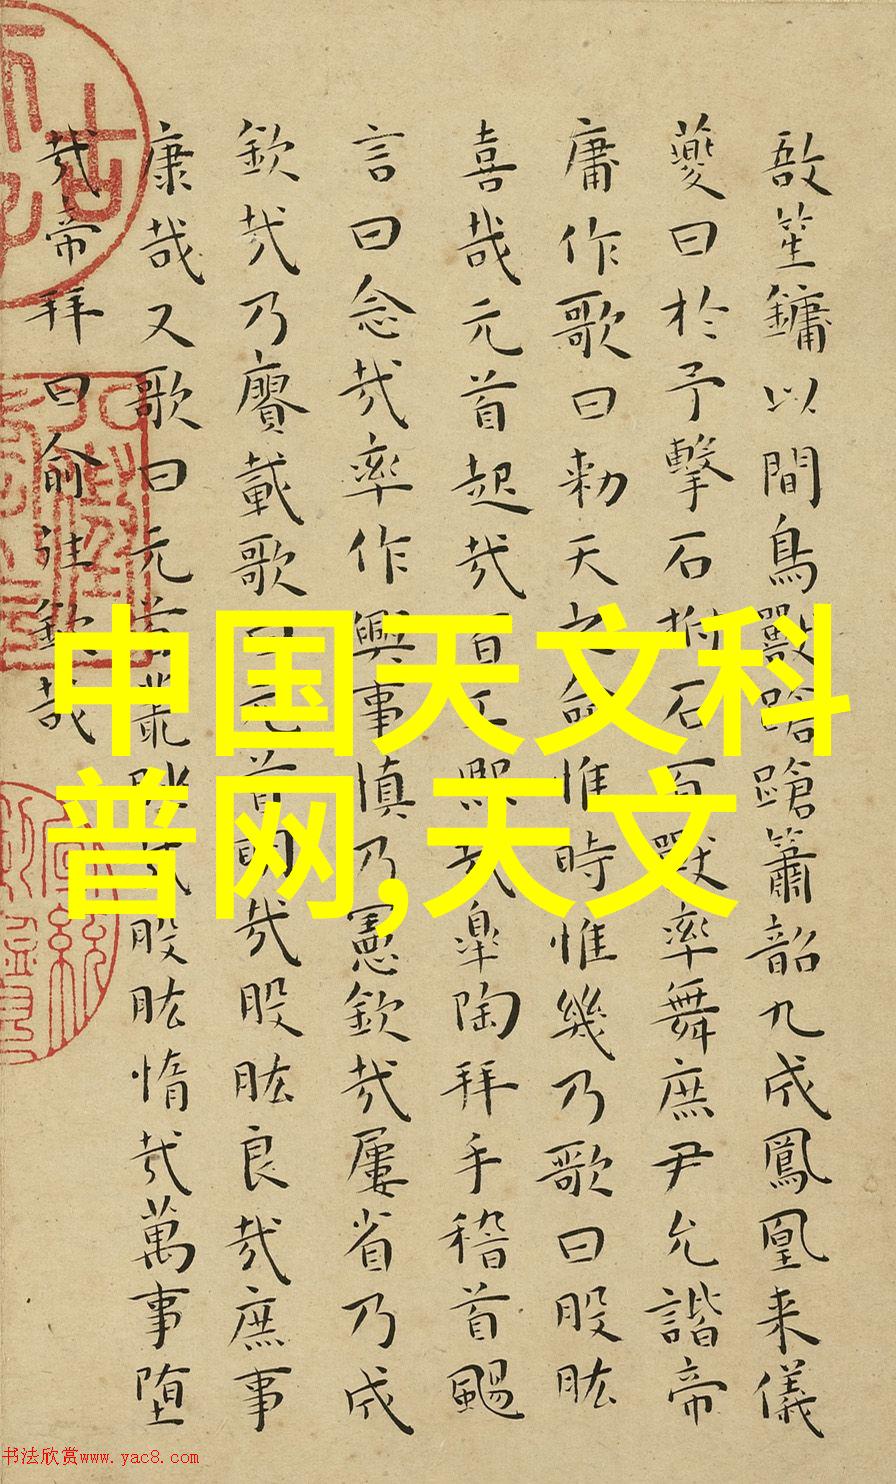 敔笙鏞以間鳥獸蹌蹌簫韶九成鳳凰来儀
夔曰於予擊石拊石百獸率舞庶尹允諧帝
庸作歌曰勑天之命惟時惟幾乃歌曰股肱
喜哉元首起哉百工熙哉皐陶拜手稽首颺
言曰念哉率作興事慎乃憲欽哉屢省乃成
欽哉乃賡載歌曰元首明哉股肱良哉庶事
康哉又歌曰元首叢脞哉股肱惰哉萬事堕
哉帝拜曰俞往欽哉
中国天文科
普网,天文
书法欣赏www.yac8.com